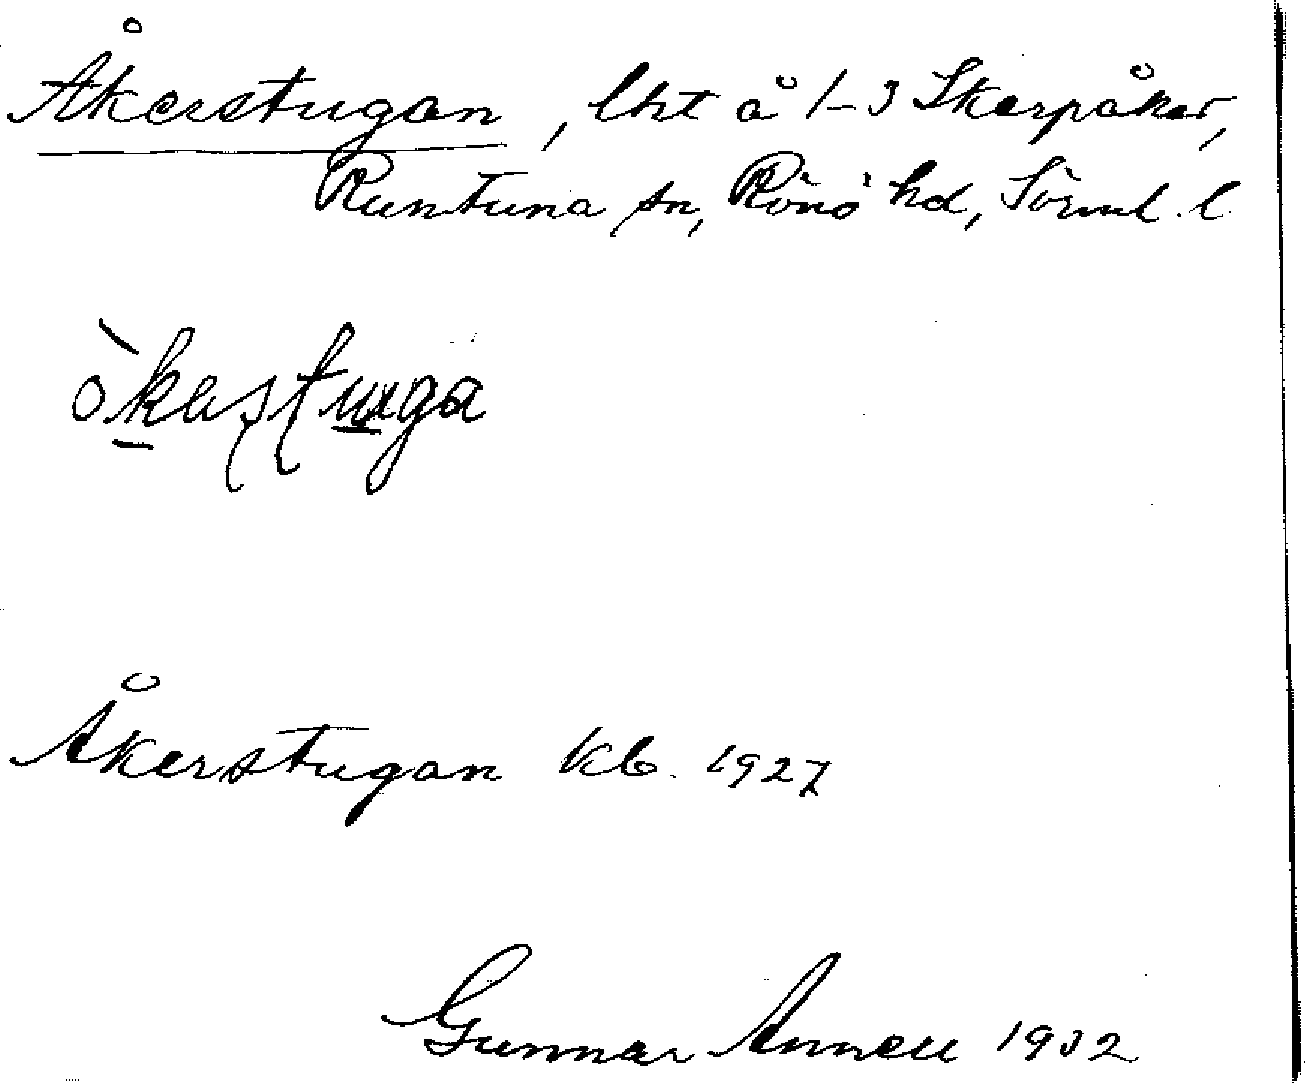 Åkerstugan, lht å 1-3 Skerpåker,
Runtuna sn, Rönö hd, Sörml. l.
òkastuga
Åkerstugan kb. 1927
Gunnar Annell 1932